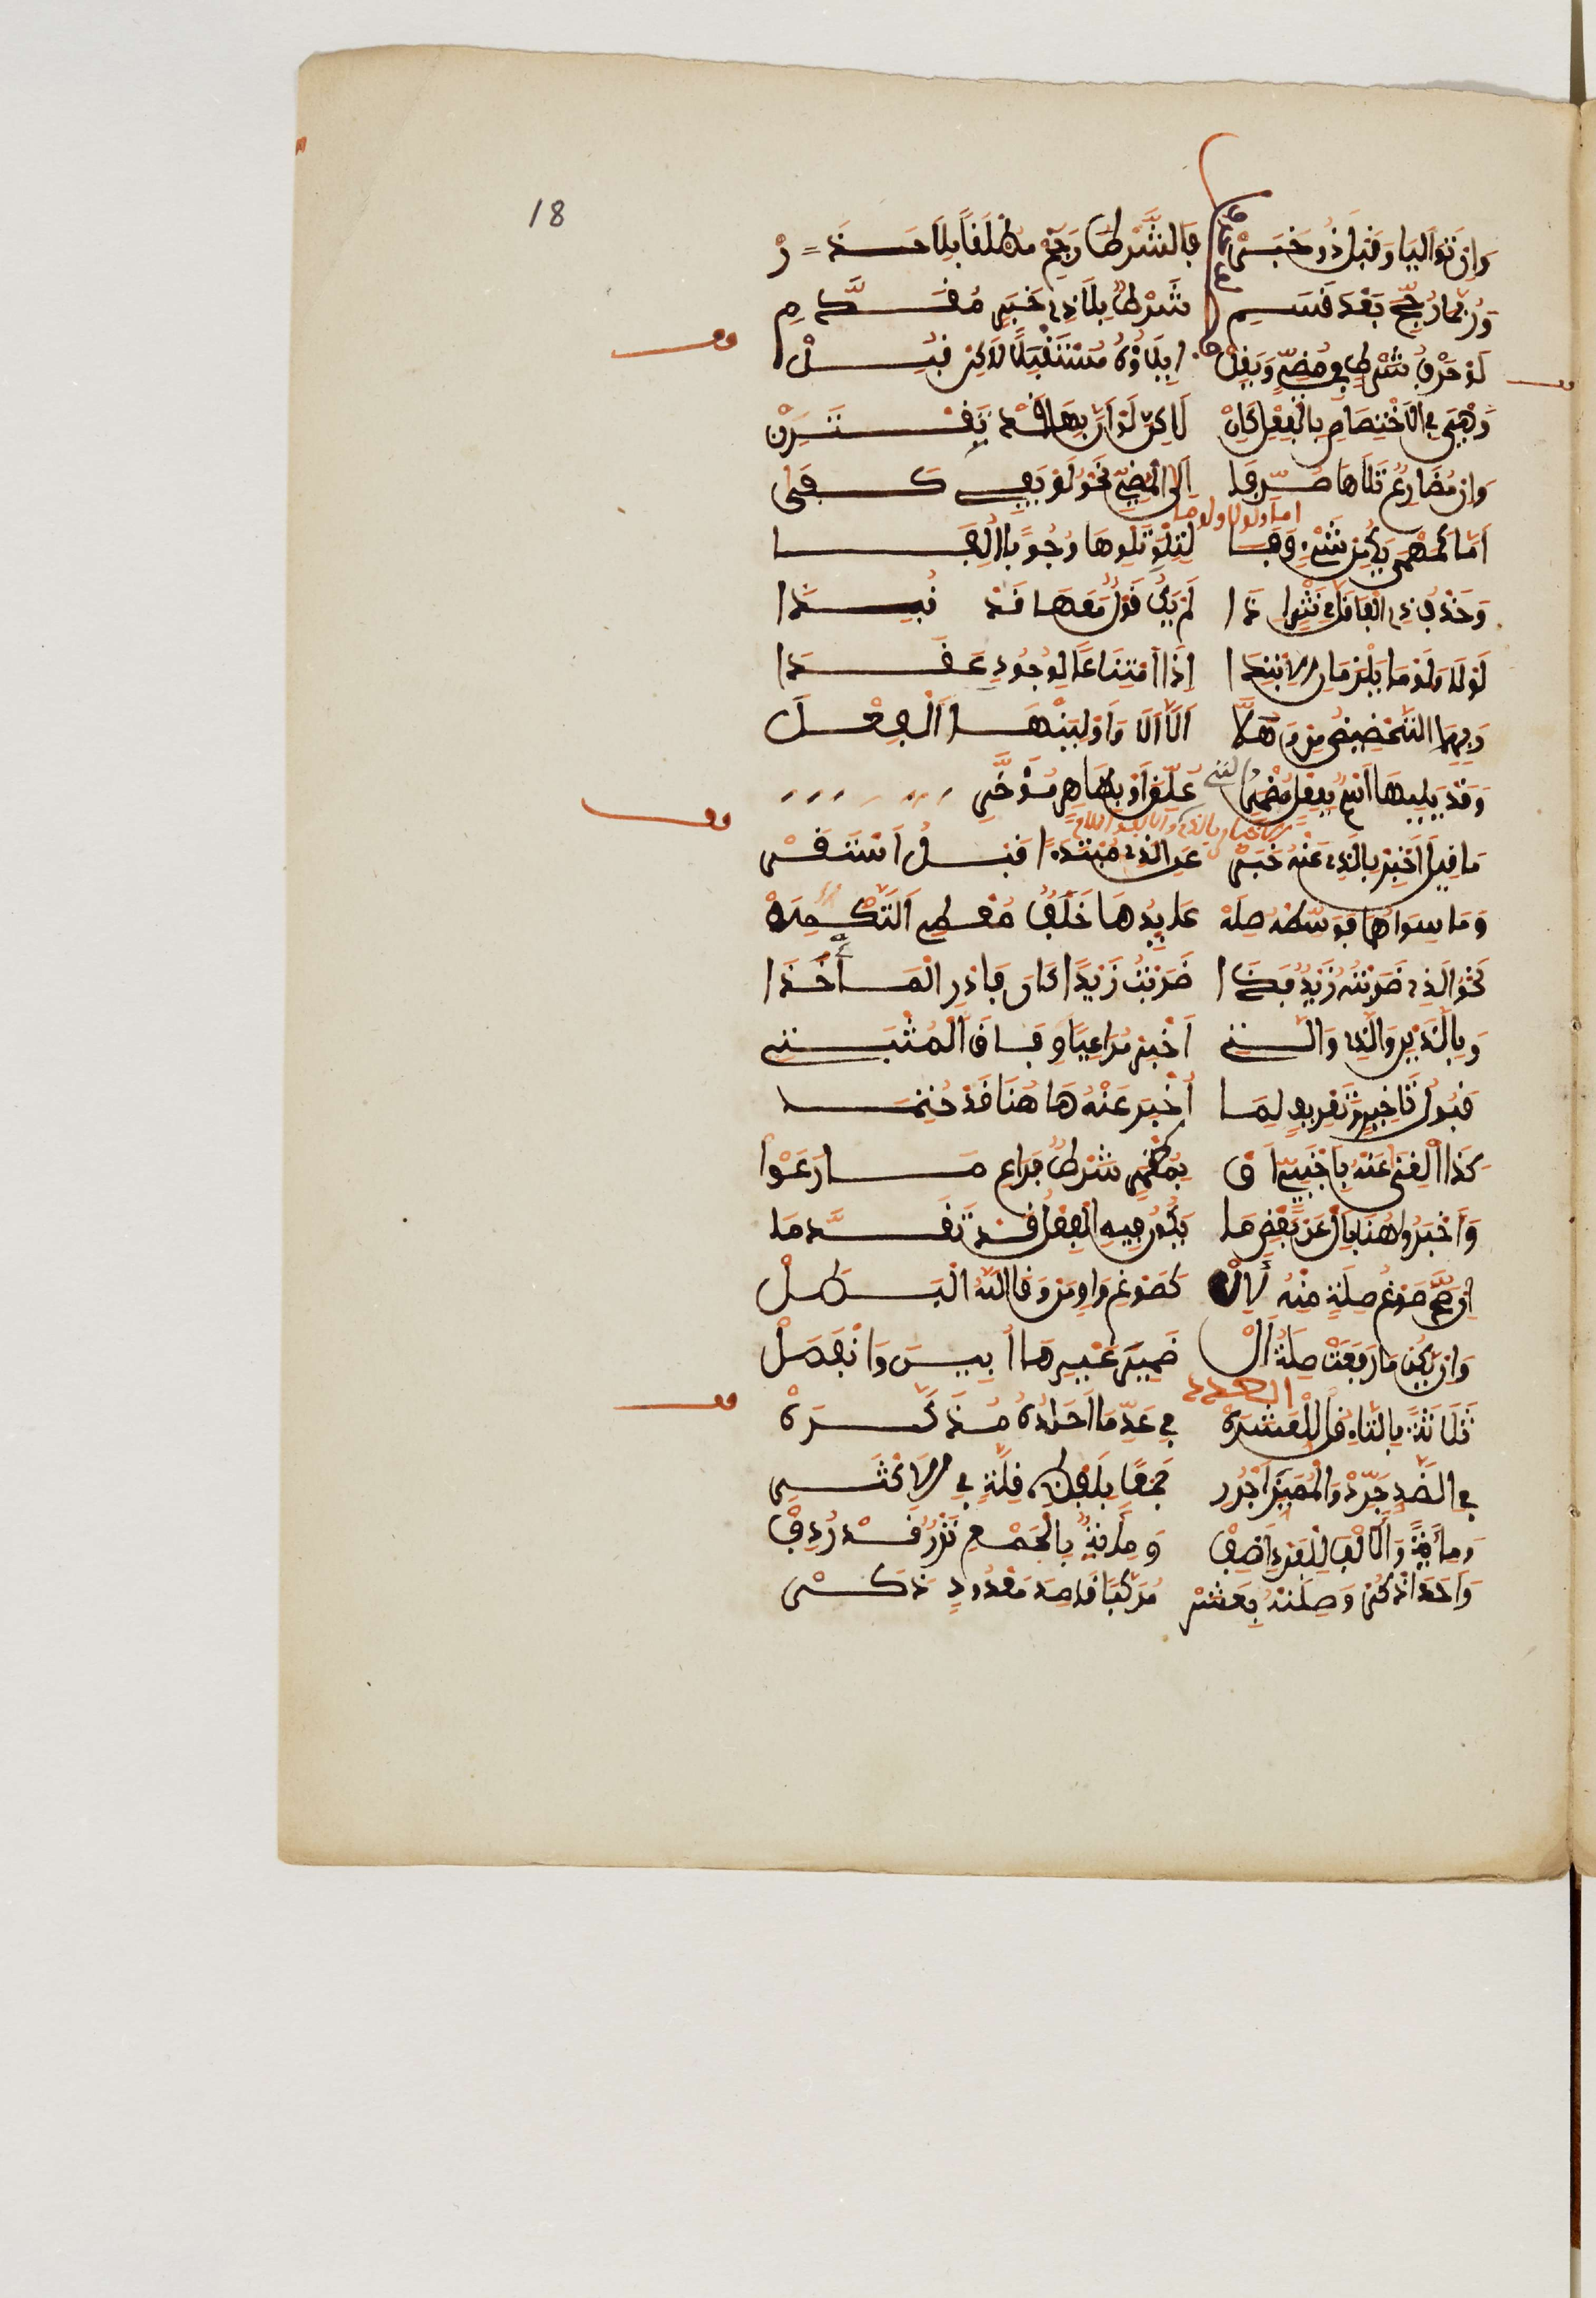 18
وَإِن تَوَالَيَا وَقَبْلُ ذُو خَبَرْ فَالشَّرْطَ رَجِّحْ مُطْلَقًا بِلَا حَذَرْ
وَرُبَّمَا رُجِّحَ بَعْدَ قَسَمِ شَرْطٌ بِلَا ذِي خَبَرٍ مُقَدَّمِ
لَوْ حَرْفُ شَرْطٍ فِي مُضِيٍّ وَيَقِلْ إِيلَاؤُهُ مُسْتَقْبَلًا لَاكِنْ قُبِلْ
وَهْيَ فِي الِاخْتِصَاصِ بِالْفِعْلِ كَإِنْ لَاكِنَّ لَوْ أَنَّ بِهَا قَدْ تَقْتَرِنْ
وَإِنْ مُضَارِعٌ تَلَاهَا صُرِفَا إِلَى الْمُضِيِّ نَحْوُ لَوْ يَفِي كَفَى
اما ولولا ولوما
أَمَّا كَمَهْمَا يَكُ مِنْ شَيْءٍ وَفَا لِتِلْوِ تِلْوِهَا وُجُوبًا أُلِفَا
وَحَذْفُ ذِي الْفَا قَلَّ فِي نَثْرٍ إِذَا لَمْ يَكُ قَوْلٌ مَعَهَا قَدْ نُبِذَا
لَوْلَا وَلَوْمَا يَلْزَمَانِ الِابْتِدَا إِذَا امْتِنَاعًا بِوُجُودٍ عَقَدَا
وَبِهِمَا التَّحْضِيضَ مِزْ وَهَلَّا أَلَّا أَلَا وَأَوْلِيَنْهَا الْفِعْلَا
وَقَدْ يَلِيهَا اسْمٌ بِفِعْلٍ مُضْمَرِ عُلِّقَ أَوْ بِظَاهِرٍ مُؤَخَّرِ
الاخبار بالذي والالف واللام
مَا قِيلَ أَخْبِرْ بِالَّذِي عَنْهُ خَبَرْ عَنِ الَّذِي مُبْتَدَأً قَبْلُ اسْتَقَرْ
وَمَا سِوَاهُمَا فَوَسِّطْهُ صِلَهْ عَائِدُهَا خَلَفُ مُعْطِي التَّكْمِلَهْ
نَحْوُ الَّذِي ضَرَبْتُهُ زَيْدٌ فَذَا ضَرَبْتُ زَيْدًا كَانَ فَادْرِ الْمَأْخَذَا
وَبِاللَّذَيْنِ وَالَّذِينَ وَالَّتِي أَخْبِرْ مُرَاعِيًا وِفَاقَ الْمُثْبَتِ
قَبُولُ تَأْخِيرٍ وَتَعْرِيفٍ لِمَا أُخْبِرَ عَنْهُ هَاهُنَا قَدْ حُتِمَا
كَذَا الْغِنَى عَنْهُ بِأَجْنَبِيٍّ أَوْ بِمُضْمَرٍ شَرْطٌ فَرَاعِ مَا رَعَوْا
وَأَخْبَرُوا هُنَا بِأَلْ عَنْ بَعْضِ مَا يَكُونُ فِيهِ الْفِعْلُ قَدْ تَقَدَّمَا
إِنْ صَحَّ صَوْغُ صِلَةٍ مِنْهُ لِأَلْ كَصَوْغِ وَاقٍ مِنْ وَقَى اللَّهُ الْبَطَلْ
وَإِنْ يَكُنْ مَا رَفَعَتْ صِلَةُ أَلْ ضَمِيرَ غَيْرِهَا أُبِينَ وَانْفَصَلْ
العدد
ثَلَاثَةً بِالتَّاءِ قُلْ لِلْعَشَرَهْ فِي عَدِّ مَا آحَادُهُ مُذَكَّرَهْ
فِي الضِّدِّ جَرِّدْ وَالْمُمَيِّزَ اجْرُرِ جَمْعًا بِلَفْظِ قِلَّةٍ فِي الْأَكْثَرِ
وَمِائَةً وَالْأَلْفَ لِلْفَرْدِ أَضِفْ وَمِائَةٌ بِالْجَمْعِ نَزْرًا قَدْ رُدِفْ
وَأَحَدَ اذْكُرْ وَصِلَنْهُ بِعَشَرْ مُرَكِّبًا قَاصِدَ مَعْدُودٍ ذَكَرْ